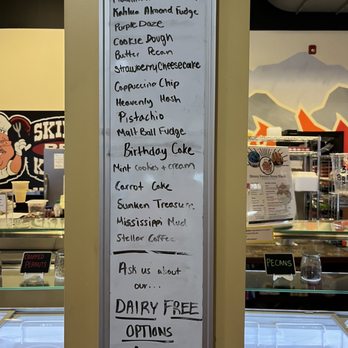 Kahlua Almond Fudge
Purple Daze
Cookie Dough
Butter Pecan
Strawberry Cheesecake
Cappuccino Chip
Heavenly Hash
Pistachio
Malt Ball Fudge
Birthday Cake
Mint cookies + cream
Carrot Cake
Sunken Treasure
Mississippi Mud
Stellar Coffee
Ask us about
our...
DAIRY FREE
OPTIONS
SKI
PECANS